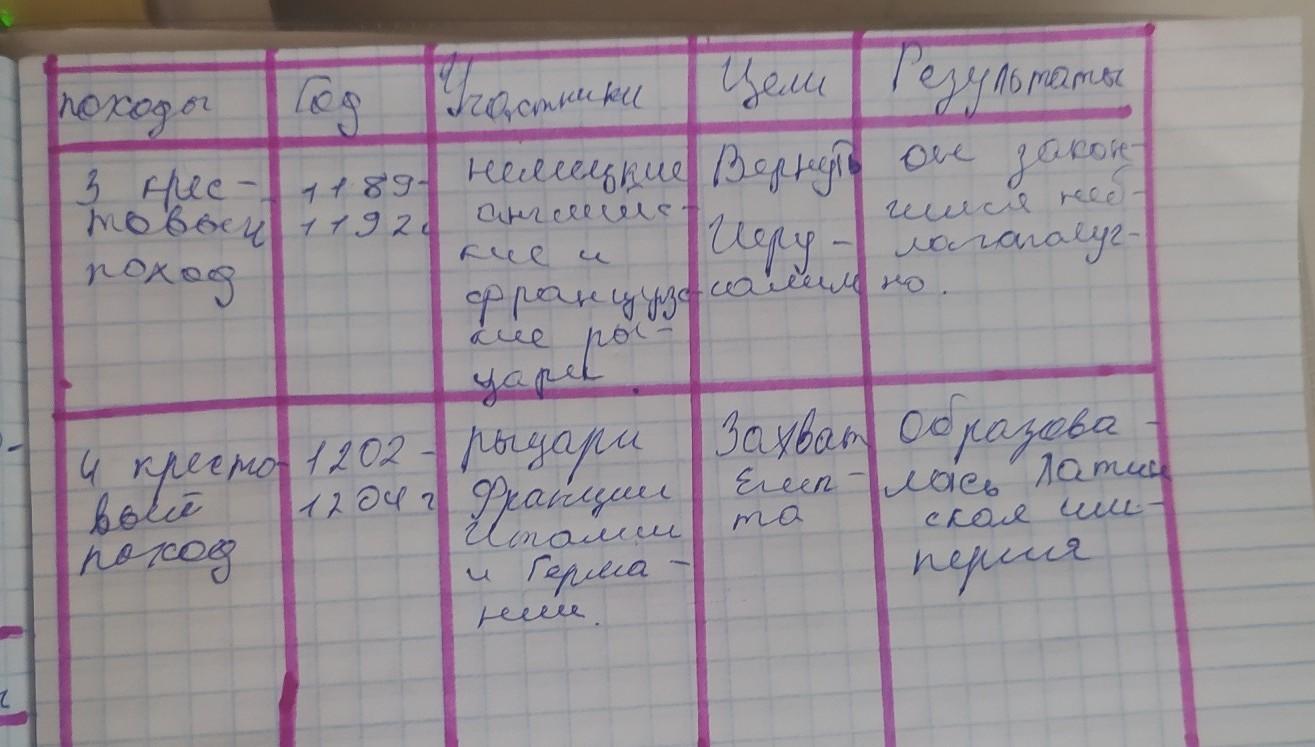 походы Год Участники Цели Результаты
3 крес-
товый
поход
1189-
1192г
немецкие
английс-
кие и
французс-
кие ры-
цари.
Вернуть
Иеру-
салим
он закон-
чился неб-
лагополуч-
но.
4 кресто-
вый
поход
1202-
1204 г
рыцари
Франции
Италии
и Герма-
нии.
Захват
Егип-
та
образова-
лась Латин
ская им-
перия